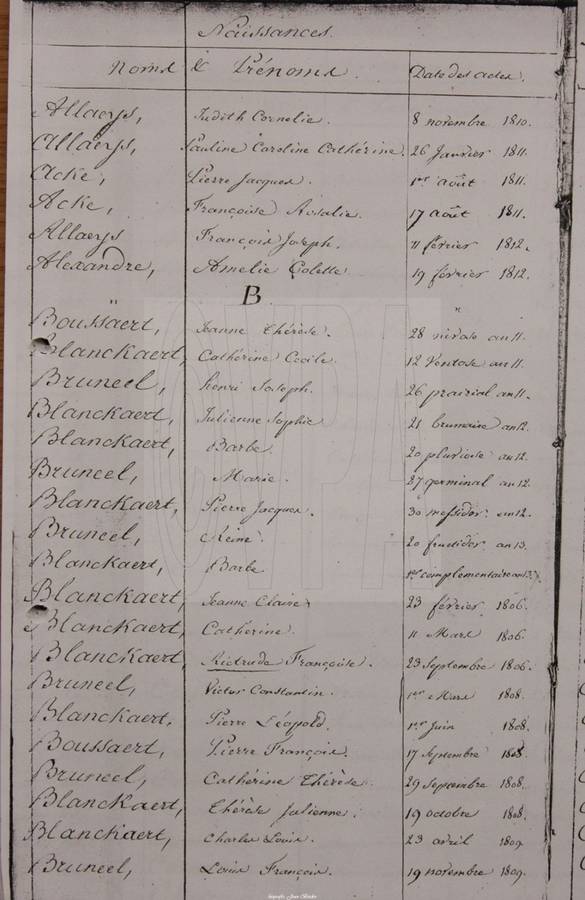 Naissances.
Noms & Prénoms. Date des actes.
Allaeys, Judith Cornelie. 8 novembre 1810.
Allaeys, Pauline Caroline Cathérine. 26 Janvier 1811.
Acke, Pierre Jacques. 1er août 1811.
Acke, Françoise Rosalie. 17 août 1811.
Allaeys François Joseph. 11 février 1812.
Alexandre, Amelie Colette 19 février 1812.
B
Boussaert, Jeanne Thérèse. 28 nivose an 11.
Blanckaert, Cathérine Cecile. 12 Ventose an 11.
Bruneel, henri Joseph. 26 prairial an 11.
Blanckaert, Julienne Sophie 21 brumaire an 12.
Blanckaert, Barbe. 20 pluviose an 12.
Bruneel, Marie. 27 germinal an 12.
Blanckaert, Pierre Jacques. 30 messidor an 12.
Bruneel, Reine. 20 fructidor an 13.
Blanckaert, Barbe 1er complementaire an 13.
Blanckaert, Jeanne Claire 23 février 1806.
Blanckaert, Catherine. 11 Mars 1806.
Blanckaert, Rictrude Françoise. 23 Septembre 1806.
Bruneel, Victor Constantin. 1er Mars 1808.
Blanckaert, Pierre Léopold. 1er Juin 1808.
Boussaert, Pierre François. 17 Septembre 1808.
Bruneel, Cathérine Thérèse. 29 Septembre 1808.
Blanckaert, Thérèse Julienne. 19 octobre 1808.
Blanckaert, Charles Louis. 23 avril 1809
Bruneel, Louis François. 19 novembre 1809.